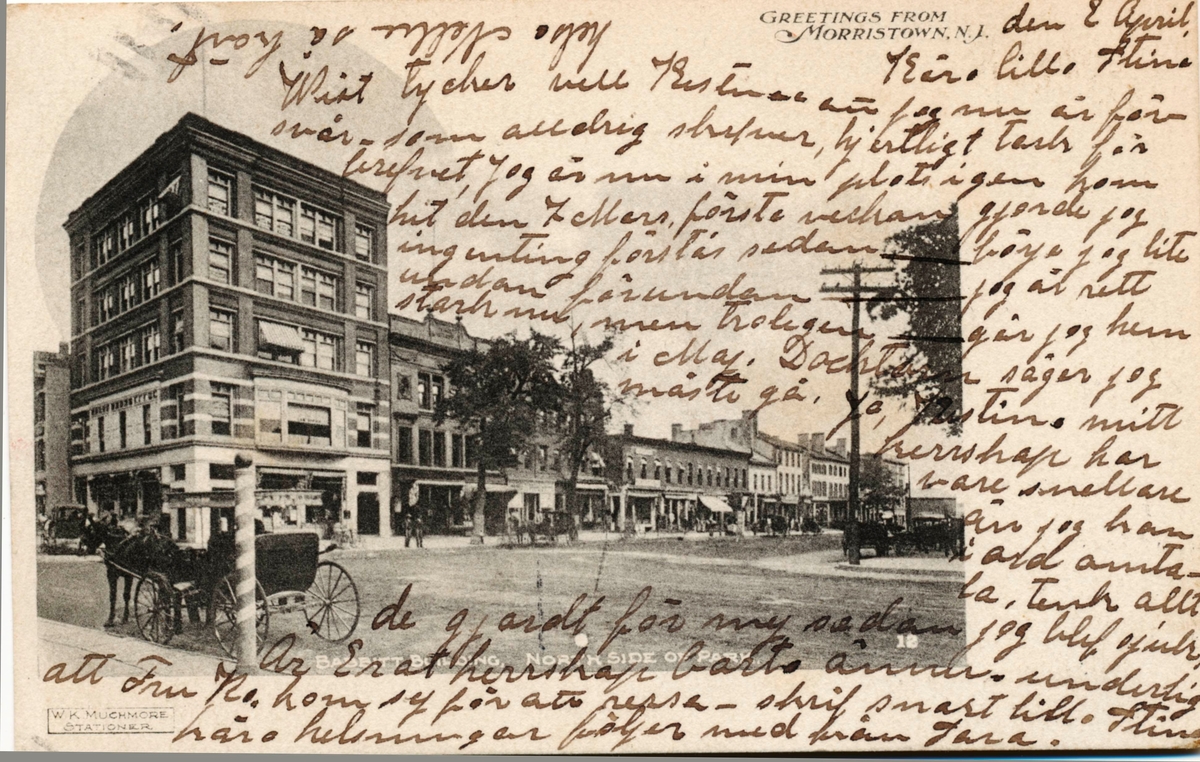 GREETINGS FROM
MORRISTOWN, N.J.
den 2 April,
Kära lilla Stina
Wist tycker vell Kestina att jag nu är för
svår – som alldrig skrefver, hjertligt tack för
brefvet, Jag är nu i min plats igen kom
hit den 7 Mars, första veckan gjorde jag
ingenting förstås sedan börja jag lite
undan förundan jag är rett
stark nu, men troligen går jag hem
i Maj. Docktorn säger jag
måste gå. Ja, Kestina mitt
herrskap har
vare snellare
än jag kan
i ord omta-
la, tenk allt
de gjordt för mej sedan jag blef sjuk
Är Erat herrskap borta ännu. underlig
att Fru Ko. kom sej för att ressa – skrif snart lilla Stina
kära helsningar följer med från Tara.
hebo Stelle så kärt.
BABBITT BUILDING, NORTH SIDE OF PARK
12
W. K. MUCHMORE
STATIONER